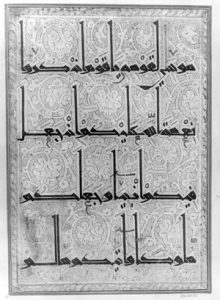 موسى لقومه يا قوم اذكروا
نعمة الله عليكم اذ جعل
فيكم انبيا وجعلكم
ملوكا واتيكم ما لم